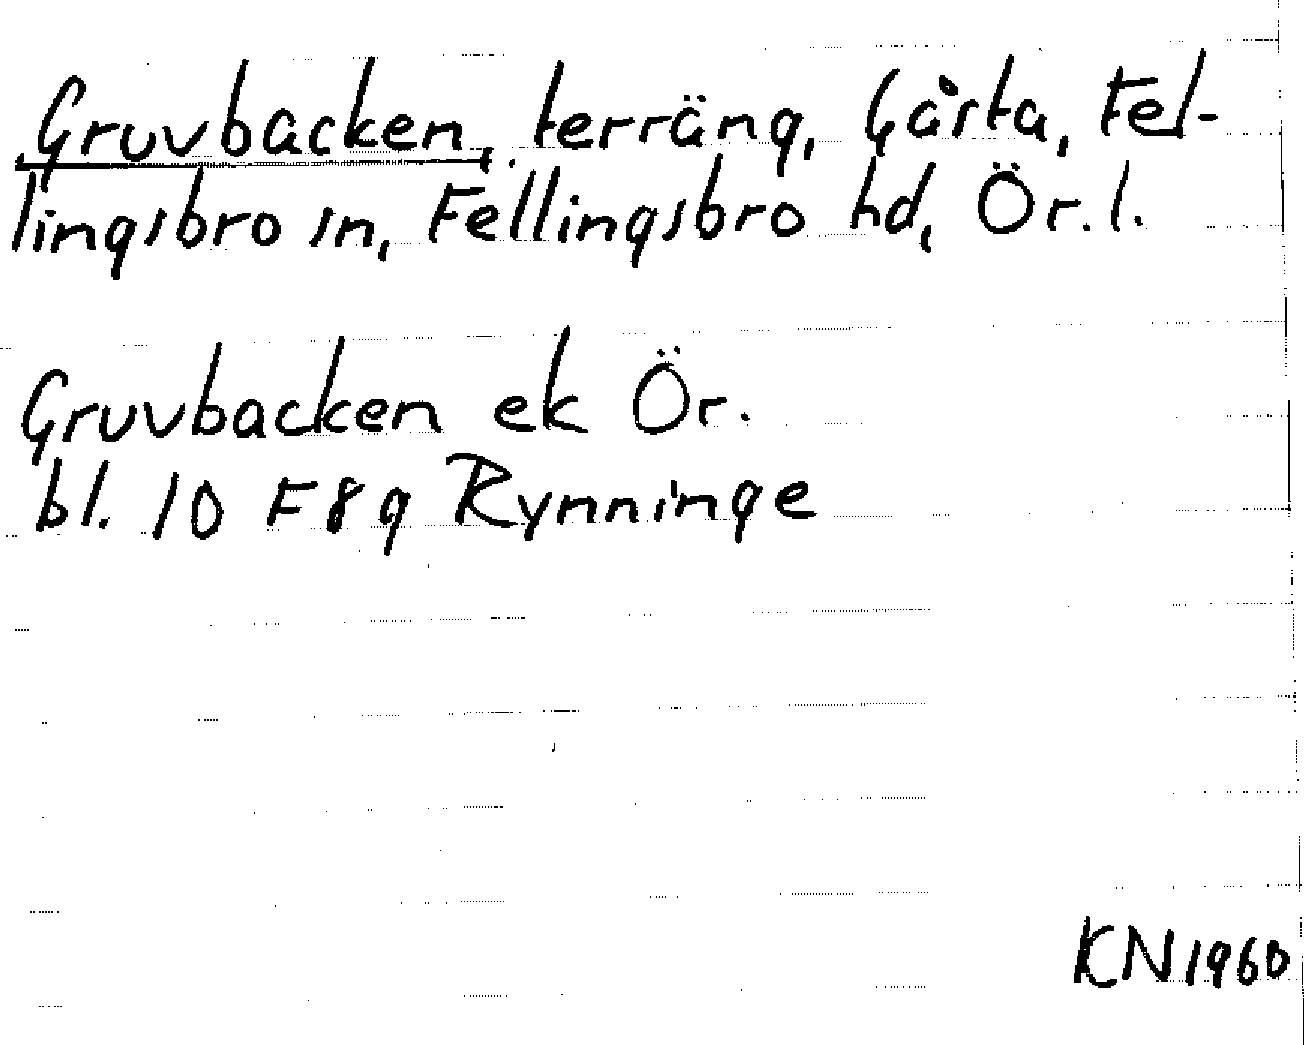 Gruvbacken, terräng, Gårsta, Fel-
lingsbro sn, Fellingsbro hd, Ör. l.
Gruvbacken ek Ör.
bl. 10 F 8 g Rynninge
KN 1960